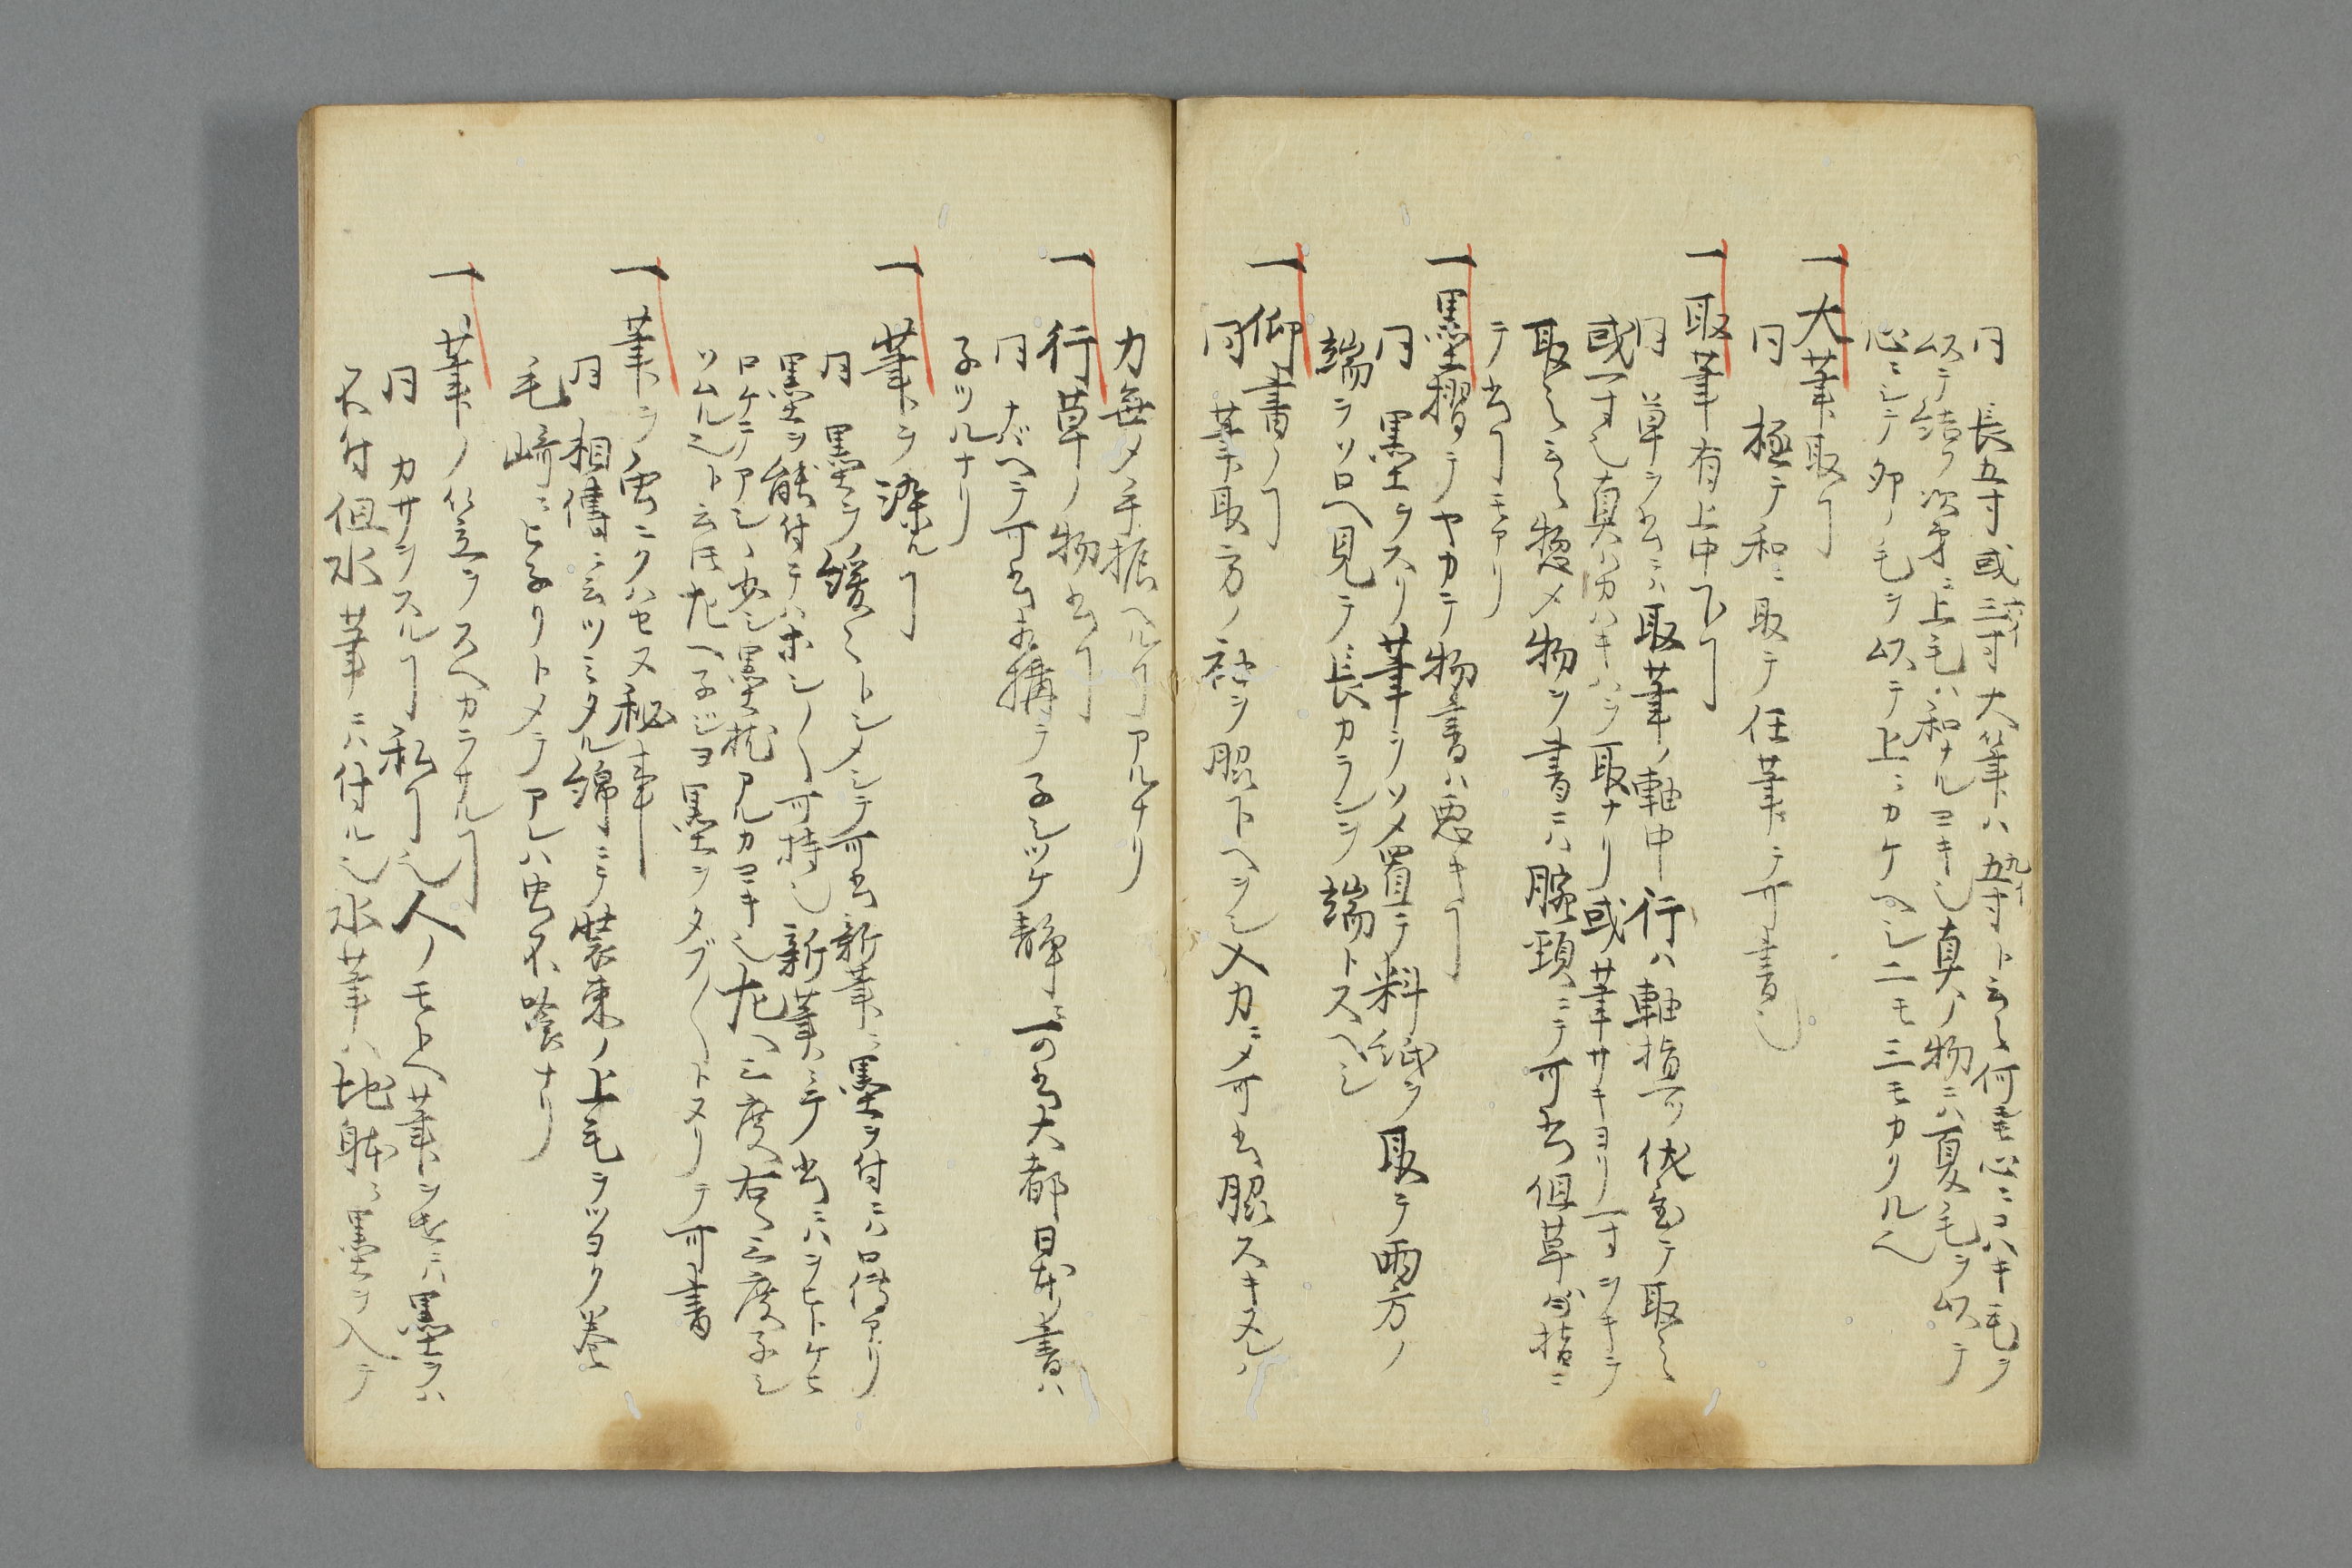 同 長五寸或三寸大筆ハ五寸ト云々何モ心ニコハキ毛ヲ
以テ結フ次第ニ上毛ハ和ナルヨキ也真ノ物ニハ夏毛ヲ以テ
心ニシテ卯ノ毛ヲ以テ上ニカケヘシ二モ三モカクルヘ
一大筆取ㄱ
同 極テ和ニ取テ任筆テ可書也
一取筆有上中下ㄱ
同 草ヲ書ニハ取筆ノ軸中行ハ軸指 伏 テ取之
或一寸也真ハ キハヲ取ナリ或筆サキヨリ一寸ツキテ
取之云々惣メ物ヲ書ニハ腕頸ニテ可書但草 指ニ
テ書ㄱモアリ
一墨摺テヤカテ物書ハ悪キㄱ
同 墨ヲスリ筆ヲソメ置テ料紙ヲ取テ両方ノ
端ヲソロヘ見テ長カランヲ端トスヘシ
一仰書ノㄱ
同 筆取方ノ袖ヲ脇下ヘヲシ入カニメ可書脇スキヌレハ
力無メ手振ヘルㄱアルナリ
一行草ノ物書ㄱ
同 ナヘテ可書相構テ子シツケ静ニ可書大都日本ノ書ハ
子ツルナリ
一筆ヲ染ルㄱ
同 墨ヲ緩々トシメシテ可書新筆ニ墨ヲ付ニハ口伝アリ
墨ヲ能付テハホシ〱可持也新筆ニテ書ニハヲヒトケヒ
ロケテアシヽ少シ墨枕アルカヨキ也左ヘ三度右ヘ三度子シ
ソムル也ト云 左ヘ子ジヨ墨ヲタブ〱トヌリテ可書
一筆ヲ虫ニクハセヌ秘事
同 相伝ニ云ツミタル綿ニテ装束ノ上毛ヲツヨク巻
毛崎ニヒ子リトメテアレハ虫不喰ナリ
一筆ノ笠ヲスヘカラサルㄱ
同 カサヲスルㄱ私ㄱ也人ノモトヘ筆ヲ ニハ墨ヲハ
不付但水筆ニハ付ル也水筆ハ地躰ニ墨ヲ入テ